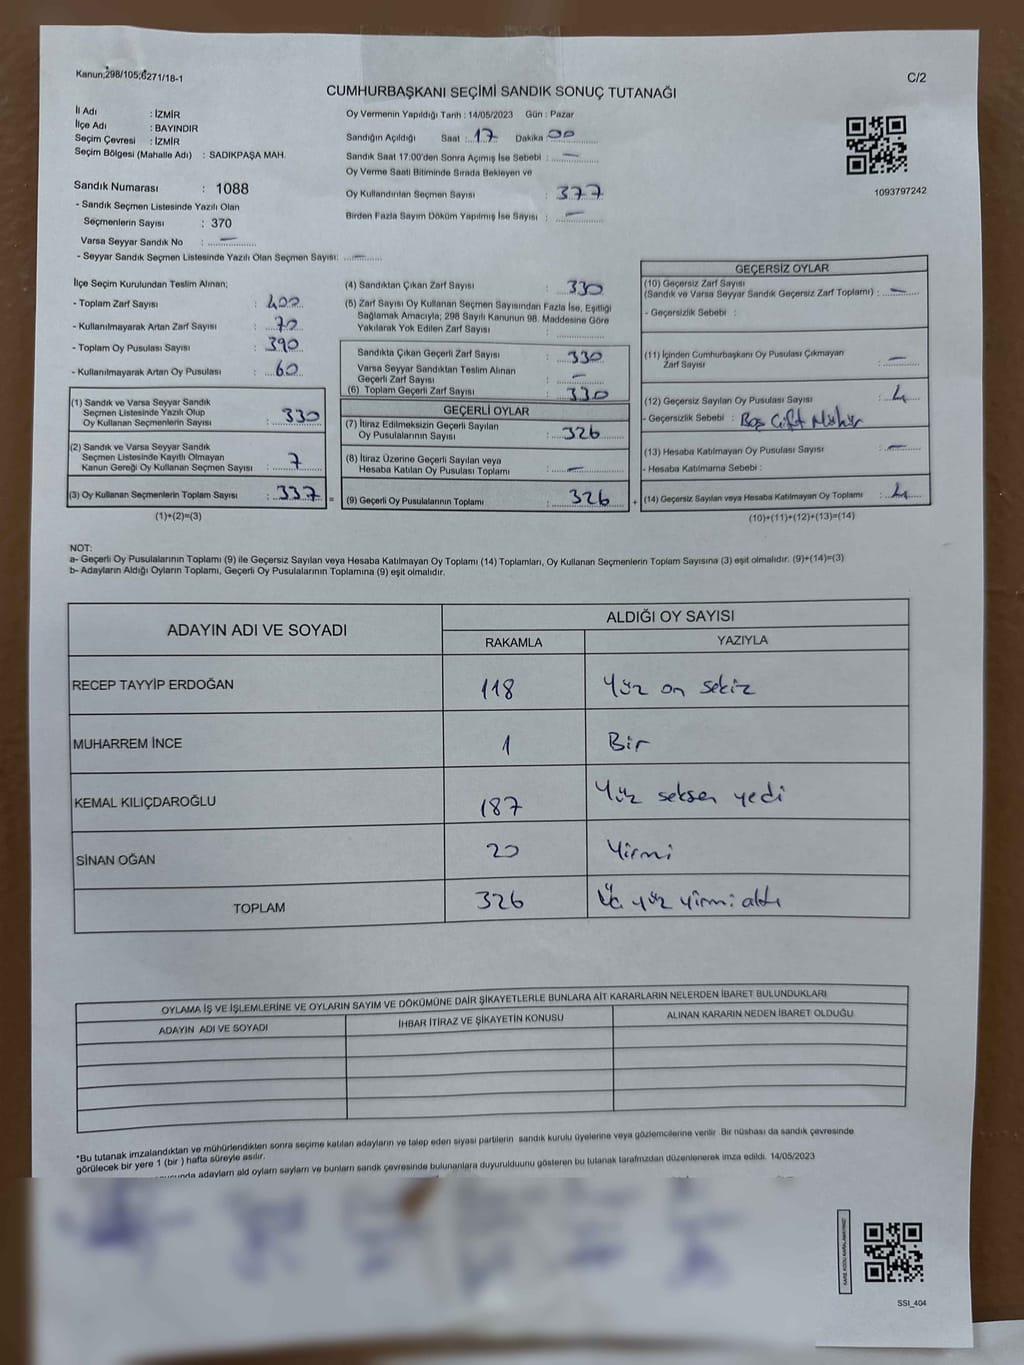 Kanun;298/105;6271/18-1
C/2
CUMHURBAŞKANI SEÇİMİ SANDIK SONUÇ TUTANAĞI
İl Adı : İZMİR
İlçe Adı : BAYINDIR
Seçim Çevresi : İZMİR
Seçim Bölgesi (Mahalle Adı) : SADIKPAŞA MAH.
Sandık Numarası : 1088
- Sandık Seçmen Listesinde Yazılı Olan
Seçmenlerin Sayısı : 370
Varsa Seyyar Sandık No : —
- Seyyar Sandık Seçmen Listesinde Yazılı Olan Seçmen Sayısı: —
Oy Vermenin Yapıldığı Tarih : 14/05/2023 Gün : Pazar
Sandığın Açıldığı Saat : 17 Dakika : 00
Sandık Saat 17:00'den Sonra Açımış İse Sebebi : —
Oy Verme Saati Bitiminde Sırada Bekleyen ve
Oy Kullandırılan Seçmen Sayısı : 377
Birden Fazla Sayım Döküm Yapılmış İse Sayısı : —
1093797242
İlçe Seçim Kurulundan Teslim Alınan;
- Toplam Zarf Sayısı : 400
- Kullanılmayarak Artan Zarf Sayısı : 70
- Toplam Oy Pusulası Sayısı : 390
- Kullanılmayarak Artan Oy Pusulası : 60
(1) Sandık ve Varsa Seyyar Sandık
Seçmen Listesinde Yazılı Olup
Oy Kullanan Seçmenlerin Sayısı : 330
(2) Sandık ve Varsa Seyyar Sandık
Seçmen Listesinde Kayıtlı Olmayan
Kanun Gereği Oy Kullanan Seçmen Sayısı : 7
(3) Oy Kullanan Seçmenlerin Toplam Sayısı : 337
(1)+(2)=(3)
=
(4) Sandıktan Çıkan Zarf Sayısı : 330
(5) Zarf Sayısı Oy Kullanan Seçmen Sayısından Fazla İse, Eşitliği
Sağlamak Amacıyla; 298 Sayılı Kanunun 98. Maddesine Göre
Yakılarak Yok Edilen Zarf Sayısı :
Sandıkta Çıkan Geçerli Zarf Sayısı : 330
Varsa Seyyar Sandıktan Teslim Alınan
Geçerli Zarf Sayısı : —
(6) Toplam Geçerli Zarf Sayısı : 330
GEÇERLİ OYLAR
(7) İtiraz Edilmeksizin Geçerli Sayılan
Oy Pusulalarının Sayısı : 326
(8) İtiraz Üzerine Geçerli Sayılan veya
Hesaba Katılan Oy Pusulası Toplamı : —
(9) Geçerli Oy Pusulalarının Toplamı : 326
+
GEÇERSİZ OYLAR
(10) Geçersiz Zarf Sayısı
(Sandık ve Varsa Seyyar Sandık Geçersiz Zarf Toplamı) : —
- Geçersizlik Sebebi :
(11) İçinden Cumhurbaşkanı Oy Pusulası Çıkmayan
Zarf Sayısı : —
(12) Geçersiz Sayılan Oy Pusulası Sayısı : 4
- Geçersizlik Sebebi : Boş Çift Mühür
(13) Hesaba Katılmayan Oy Pusulası Sayısı : —
- Hesaba Katılmama Sebebi :
(14) Geçersiz Sayılan veya Hesaba Katılmayan Oy Toplamı : 4
(10)+(11)+(12)+(13)=(14)
NOT:
a- Geçerli Oy Pusulalarının Toplamı (9) ile Geçersiz Sayılan veya Hesaba Katılmayan Oy Toplamı (14) Toplamları, Oy Kullanan Seçmenlerin Toplam Sayısına (3) eşit olmalıdır. (9)+(14)=(3)
b- Adayların Aldığı Oyların Toplamı, Geçerli Oy Pusulalarının Toplamına (9) eşit olmalıdır.
ADAYIN ADI VE SOYADI
ALDIĞI OY SAYISI
RAKAMLA YAZIYLA
RECEP TAYYİP ERDOĞAN 118 Yüz on sekiz
MUHARREM İNCE 1 Bir
KEMAL KILIÇDAROĞLU 187 Yüz seksen yedi
SİNAN OĞAN 20 Yirmi
TOPLAM 326 Üç yüz yirmi altı
OYLAMA İŞ VE İŞLEMLERİNE VE OYLARIN SAYIM VE DÖKÜMÜNE DAİR ŞİKAYETLERLE BUNLARA AİT KARARLARIN NELERDEN İBARET BULUNDUKLARI
ADAYIN ADI VE SOYADI İHBAR İTİRAZ VE ŞİKAYETİN KONUSU ALINAN KARARIN NEDEN İBARET OLDUĞU
*Bu tutanak imzalandıktan ve mühürlendikten sonra seçime katılan adayların ve talep eden siyasi partilerin sandık kurulu üyelerine veya gözlemcilerine verilir. Bir nüshası da sandık çevresinde
görülecek bir yere 1 (bir ) hafta süreyle asılır.
adayların ald oyların sayların ve bunların sandık çevresinde bulunanlara duyurulduunu gösteren bu tutanak tarafmzdan düzenlenerek imza edildi. 14/05/2023
SSI_404